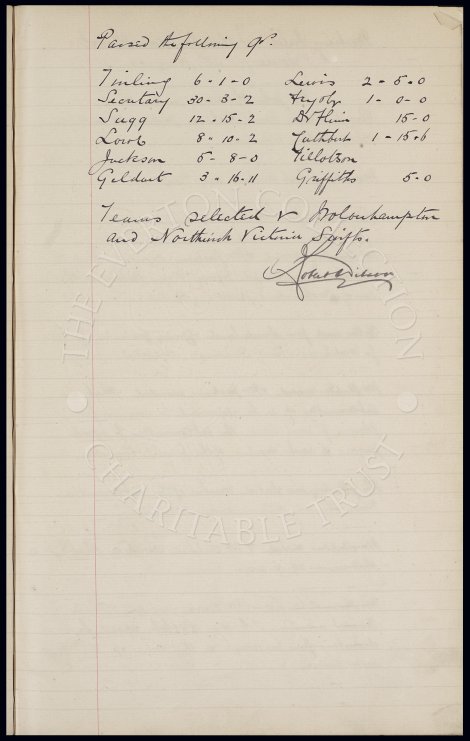 Passed the following a/cs.
Tinling 6-1-0 Lewis 2-5-0
Secretary 30-3-2 1-0-0
Sugg 12-15-2 15-0
Lowe 8-10-2 Cuthbert 1-15-6
Jackson 5-8-0 Tillotson
Geldart 3-16-11 Griffiths 5-0
Teams selected v Wolverhampton
and Northwich Victoria Swifts.
Robert Wilson
THE EVERTON COLLECTION
CHARITABLE TRUST